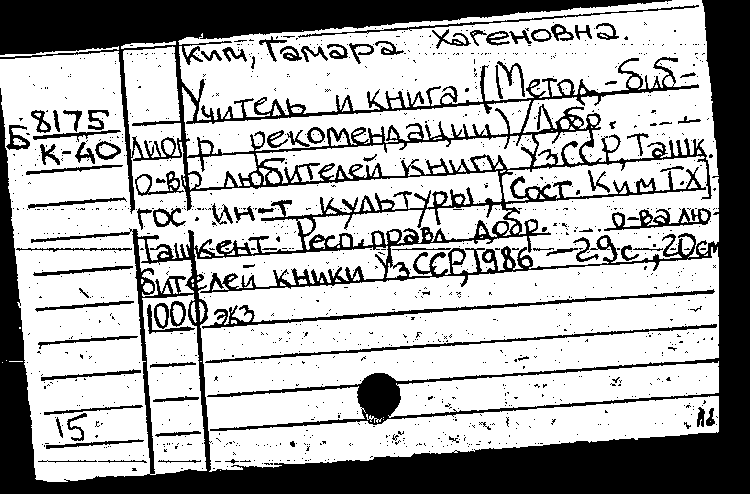 Ким, Тамара Хагеновна.
Учитель и книга: (Метод.-биб-
Б 8175
К-40
лиогр. рекомендации) / Добр.
о-во любителей книги УзССР, Ташк.
гос. ин-т культуры; [Сост. Ким Т.Х]
Ташкент: Респ. правл добр. о-ва лю-
бителей кники УзССР, 1986 - 29с.; 20см
1000 экз
15.